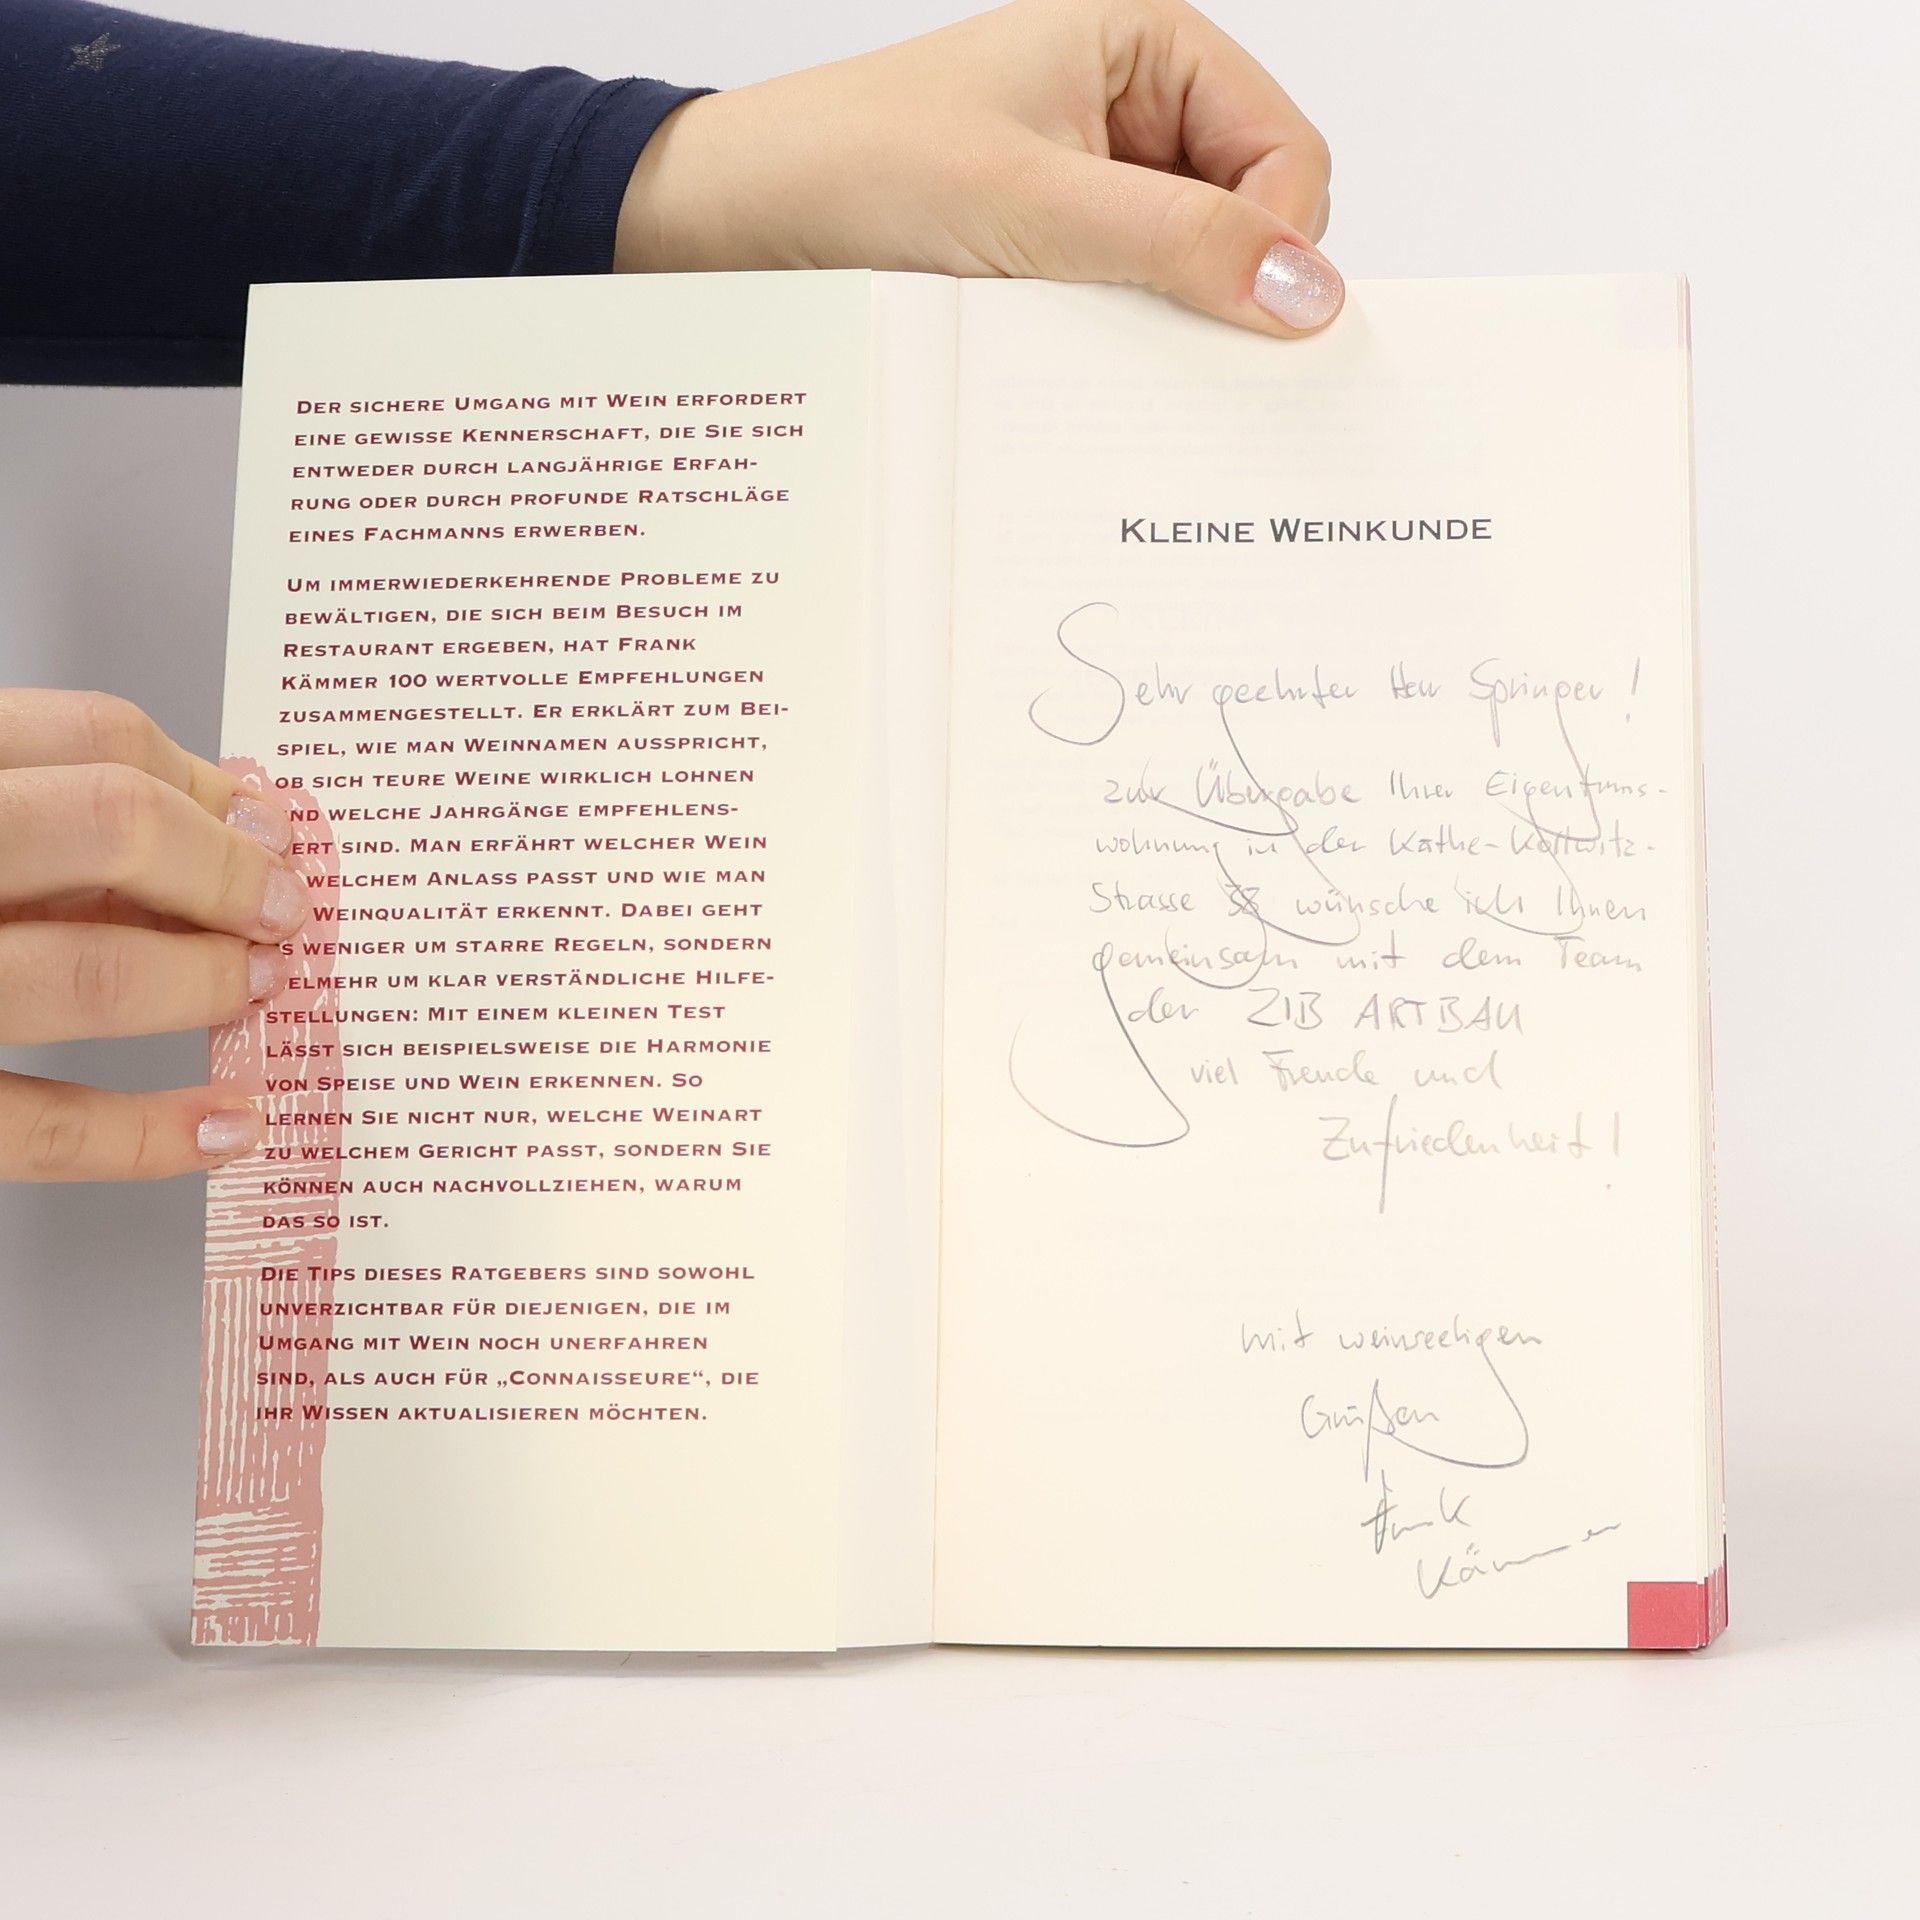 DER SICHERE UMGANG MIT WEIN ERFORDERT
EINE GEWISSE KENNERSCHAFT, DIE SIE SICH
ENTWEDER DURCH LANGJÄHRIGE ERFAH-
RUNG ODER DURCH PROFUNDE RATSCHLÄGE
EINES FACHMANNS ERWERBEN.
UM IMMERWIEDERKEHRENDE PROBLEME ZU
BEWÄLTIGEN, DIE SICH BEIM BESUCH IM
RESTAURANT ERGEBEN, HAT FRANK
KÄMMER 100 WERTVOLLE EMPFEHLUNGEN
ZUSAMMENGESTELLT. ER ERKLÄRT ZUM BEI-
SPIEL, WIE MAN WEINNAMEN AUSSPRICHT,
OB SICH TEURE WEINE WIRKLICH LOHNEN
ND WELCHE JAHRGÄNGE EMPFEHLENS-
ERT SIND. MAN ERFÄHRT WELCHER WEIN
WELCHEM ANLASS PASST UND WIE MAN
WEINQUALITÄT ERKENNT. DABEI GEHT
S WENIGER UM STARRE REGELN, SONDERN
ELMEHR UM KLAR VERSTÄNDLICHE HILFE-
STELLUNGEN: MIT EINEM KLEINEN TEST
LÄSST SICH BEISPIELSWEISE DIE HARMONIE
VON SPEISE UND WEIN ERKENNEN. SO
LERNEN SIE NICHT NUR, WELCHE WEINART
ZU WELCHEM GERICHT PASST, SONDERN SIE
KÖNNEN AUCH NACHVOLLZIEHEN, WARUM
DAS SO IST.
DIE TIPS DIESES RATGEBERS SIND SOWOHL
UNVERZICHTBAR FÜR DIEJENIGEN, DIE IM
UMGANG MIT WEIN NOCH UNERFAHREN
SIND, ALS AUCH FÜR „CONNAISSEURE“, DIE
IHR WISSEN AKTUALISIEREN MÖCHTEN.
KLEINE WEINKUNDE
Sehr geehrter Herr Springer!
zur Übergabe Ihrer Eigentums-
wohnung in der Käthe-Kollwitz-
Strasse wünsche ich Ihnen
gemeinsam mit dem Team
der ZIB ARTBAU
viel Freude und
Zufriedenheit!
mit weinseeligen
Grüßen
Frank
Kämmer